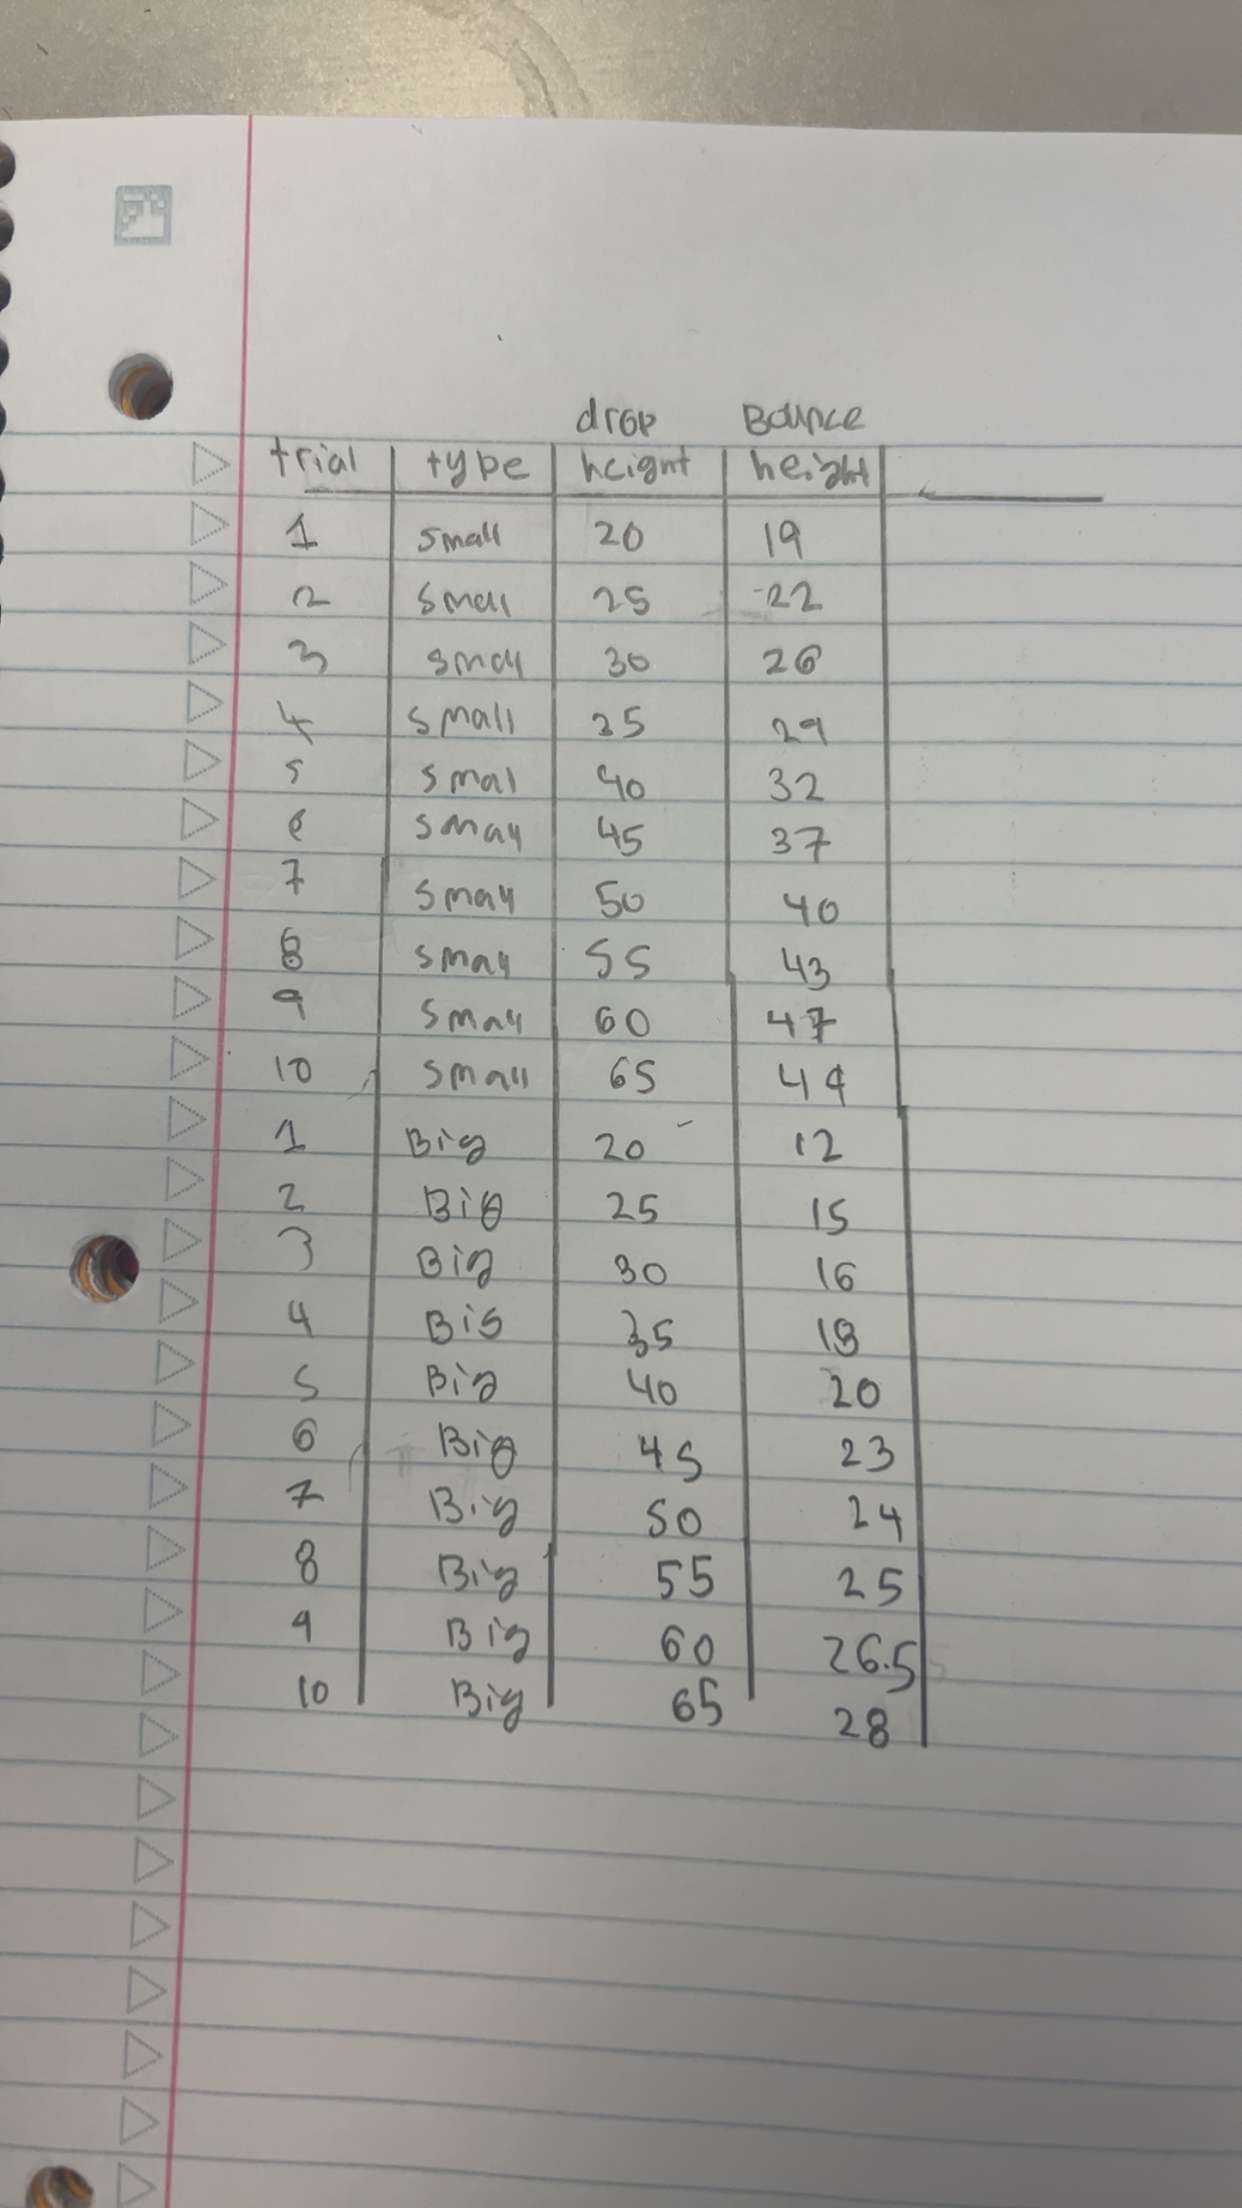 drop Bounce
trial type height height
1 small 20 19
2 small 25 22
3 small 30 26
4 small 25 29
5 smal 40 32
6 small 45 37
7 small 50 40
8 small 55 43
9 small 60 47
10 small 65 49
1 Big 20 12
2 Big 25 15
3 Big 30 16
4 Big 35 18
5 Big 40 20
6 Big 45 23
7 Big 50 24
8 Big 55 25
9 Big 60 26.5
10 Big 65 28